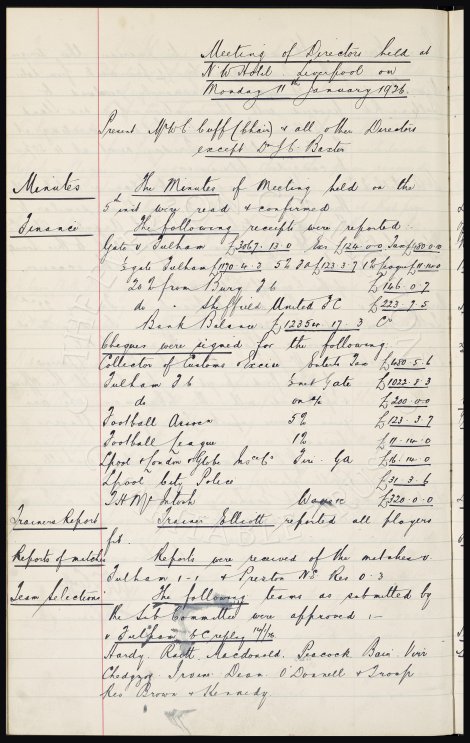 Meeting of Directors held at
N W Hotel Liverpool on
Monday 11th January 1926.
Present Mr W C Cuff (Chair) & all other Directors
except Dr J C. Baxter
Minutes
The Minutes of Meeting held on the
5th inst were read & confirmed
Finance
The following receipts were reported:-
Gate v Fulham £3067.13.0 £124.0.0 £480.0.0
½ gate Fulham £1170.4.3 5% Fa £123.3.7 1% League £11.14.0
20% from Bury Fc £146.0.7
do - Sheffield United FC £223.7.5
Bank Balance £12354.17.3 Cr
Cheques were signed for the following.
Collector of Customs & Excise Enterts Tax £480.5.6
Fulham Fc ½ nett Gate £1022.8.3
do on a/c £200.0.0
Football Assocn 5% £123.3.7
Football League 1% £11.14.0
Lpool & London & Globe Insce Co Fire £16.14.0
Lpool City Police £31.3.6
T. H. McIntosh Wages £320.0.0
Trainers Report
Trainer Elliott reported all players
fit.
Reports of matches
Reports were received of the matches v.
Fulham 1-1 & Preston N.E Res 0.3
Team Selections
The following teams as submitted by
the Sub Committee were approved :-
v Fulham E C replay 14/1/26
Hardy. Raitt. Macdonald. Peacock Bain. Virr
Chedgzoy. Irvine. Dean. O'Donnell & Troup
Res Brown & Kennedy